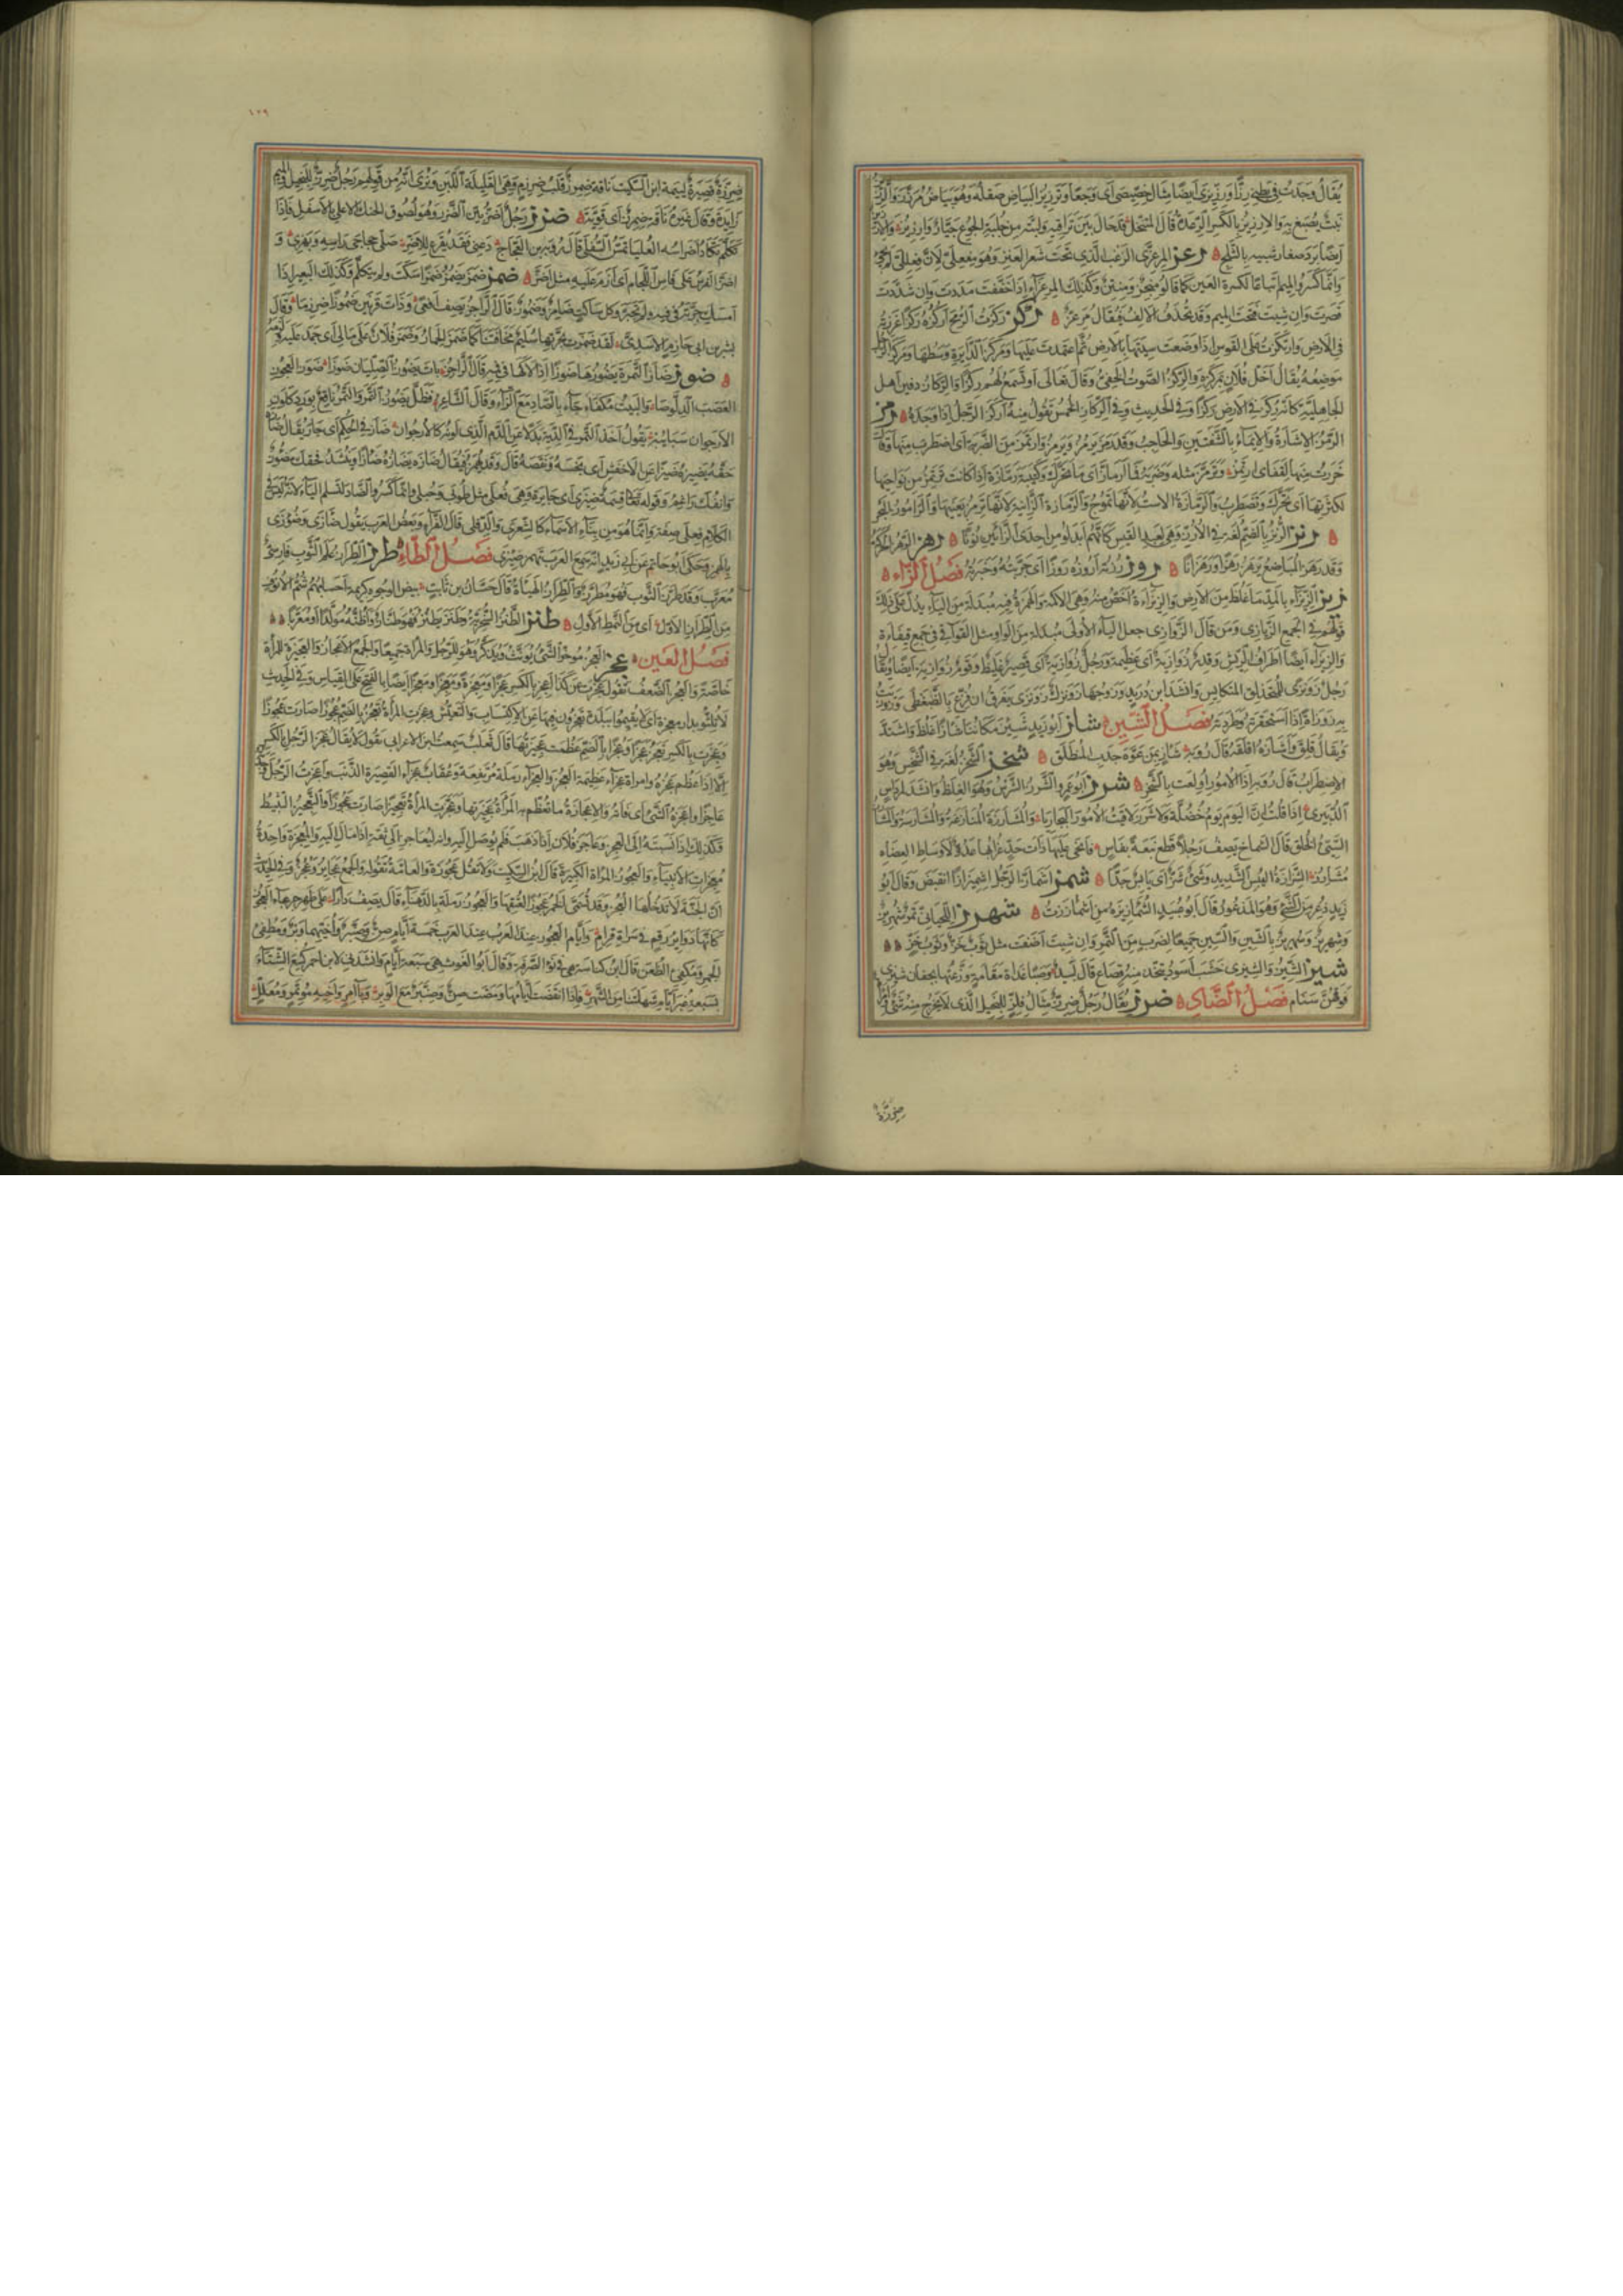 يقال وجدت في بطني رزا ورزيزى ايضا مثال خصيصى اى وجعا وترزيز البياض صقله وهو بياض مرزز والرزيز
نبت يصبغ به والارزيز بالكسر الرعدة قال المتنخل قد حال بين تراقيه ولبته من جلبة الجوع جيار وارزيز والارزيز
ايضا برد صغار شبيه بالثلج رعز المرعزى الزغب الذى تحت شعر العنز وهو مفعلى لان فعللى لم يجئ
وانما كسروا الميم اتباعا لكسرة العين كما قالوا منخر ومنتن وكذلك المرعزاء اذا خففت مددت وان شددت
قصرت وان شيت فتحت الميم وقد تحذف الالف فيقال مرعز ركز ركزت الرمح اركزه ركزا غرزته
في الارض وارتكزت على القوس اذا وضعت سيتها بالارض ثم اعتمدت عليها ومركز الدايرة وسطها ومركز الرجل
موضعه يقال اخل فلان بمركزه والركز الصوت الخفي وقال تعالى او تسمع لهم ركزا والركاز دفين اهل
الجاهلية كانه ركز في الارض ركزا وفي الحديث وفي الركاز الخمس تقول منه اركز الرجل اذا وجده رمز
الرمز الاشارة والايماء بالشفتين والحاجب وقد رمز يرمز ويرمز وارتمز من الضربة اى اضطرب منها وقال
خررت منها لقفاى ارتمز وترمز مثله وضربته فما ارماز اى ما تحرك وكتيبة رمازة اذا كانت ترتمز من نواحيها
لكثرتها اى تتحرك وتضطرب والرمازة الاست لانها تموج والرمازة الزانية لانها ترمز بعينيها والراموز البحر
رنز الرنز بالضم لغة في الارز وهي لعبد القيس كانهم ابدلوا من احدى الزائين نونا رهز الرهز الحركة
وقد رهز المباضع يرهز رهزا ورهزانا روز رزته اروزه روزا اى جربته وخبرته فصل الزاء
زيز الزيزاء بالمد ما غلظ من الارض والزيزاءة اخص منه وهي الاكمة والهمزة فيه مبدلة من الياء يدل على ذلك
قولهم في الجمع الزيازى ومن قال الزوازى جعل الياء الاولى مبدلة من الواو مثل القوافي في جمع قيقاءة
والزيزاء ايضا اطراف الريش وقدر زوازية اى عظيمة ورجل زوازية اى قصير غليظ وقوم زوازية ايضا ويقال
رجل زونزى للمتحذلق المتكايس وانشد ابن دريد وزوجها زونزك زونزى يفرق ان فزع بالضبغطى وزوزيت
به زوزاة اذا استحقرته وطردته فصل الشين شاز ابو زيد شئز مكاننا شازا غلظ واشتد
ويقال قلق واشازه اقلقه قال رؤبة شاز بمن عوه جدب المنطلق شخز الشخز لغة في الشخس وهو
الاضطراب قال رؤبة اذا الامور اولعت بالشخز شرز ابو عمرو الشرز الشرس وهو الغلظ وانشد لمرداس
الدبيرى اذا قلت ان اليوم يوم خضلة ولا شرز لاقيت الامور البجاريا والمشارزة المنازعة والمشارسة والمشارز
السيئ الخلق قال الشماخ يصف رجلا قطع نبعة بفاس فانحى عليها ذات حد غرابها عدو لاوساط العضاه
مشارز الشزازة اليبس الشديد وشئ شز اى يابس جدا شمز اشماز الرجل اشميزازا انقبض وقال ابو
زيد ذعر من الشئ وهو المذعور قال ابو عبيد الشمازيزة من اشماززت شهرز اللحياني تمر شهريز
وشهريز وسهريز بالشين والسين جميعا لضرب من التمر وان شيت اضفت مثل ثوب خز وثوب خز
شيز الشيز والشيزى خشب اسود يتخذ منه قصاع قال لبيد وصبا غداة مقامة وزعتها بجفان شيزى
فوقهن سنام فصل الضاد ضرز يقال رجل ضرز مثال فلز للبخيل الذى لا يخرج منه شئ وامراة
ضرزة
١٠٩
ضرزة قصيرة ليمة ابن السكيت ناقة ضمرز قلب ضرزم وهي القليلة اللبن ونرى انه من قولهم رجل ضرز للبخيل والميم
زايدة وقال غيره ناقة ضمرز اى قوية ضزز رجل اضز بين الضزز وهو لصوق الحنك الاعلى بالاسفل فاذا
تكلم تكاد اضراسه العليا تمس السفلى قال رؤبة بن العجاج دعني فقد يقرع للاضز صكى حجاجى راسه وبهزى و
اضز الفرس على فاس اللجام اى ازم عليه مثل اضز ضمز ضمز يضمز ضمزا سكت ولم يتكلم وكذلك البعير اذا
امسك جرته في فيه ولم يجتر وكل ساكت ضامز وضموز قال الراجز يصف افعى وذات قرنين ضموزا ضرزما وقال
بشر بن ابي خازم الاسدى لقد ضمزت بجرتها سليم مخافتنا كما ضمز الحمار وضمز فلان على مالي اى جمد عليه ولزمه
ضوز ضاز التمرة يضوزها ضوزا اذا لاكها في فيه قال الراجز بات يضوز الصليان ضوزا ضوز العجوز
العصب الدلوصا والبيت مكفاء جاء بالصاد مع الزاء وقال الشاعر فظل يضوز التمر والتمر ناقع بورد كلون
الارجوان سباببه يقول اخذ التمر في الدية بدلا عن الدم الذى لونه كالارجوان ضاز في الحكم اى جار يقال ضازه
حقه يضيزه ضيزا عن الاخفش اى بخسه ونقصه قال وقد يهمز فيقال ضازه يضازه ضازا وينشد فحقك مضوز
وانفك راغم وقوله تعالى قسمة ضيزى اى جايرة وهي فعلى مثل طوبى وحبلى وانما كسروا الضاد لتسلم الياء لانه ليس في
الكلام فعلى صفة وانما هو من بناء الاسماء كالشعرى والدفلى قال الفراء وبعض العرب يقول ضازى وضوزى
بالهمز وحكى ابو حاتم عن ابي زيد انه سمع العرب تهمز ضيزى فصل الطاء طرز الطراز علم الثوب فارسي
معرب وقد طرزت الثوب فهو مطرز والطراز الهياة قال حسان بن ثابت بيض الوجوه كريمة احسابهم شم الانوف
من الطراز الاول اى من النمط الاول طنز الطنز السخرية وطنز يطنز فهو طناز واظنه مولدا او معربا
فصل العين عجز العجز موخر الشئ يونث ويذكر وهو للرجل والمراة جميعا والجمع الاعجاز والعجيزة للمراة
خاصة والعجز الضعف تقول عجزت عن كذا اعجز بالكسر عجزا ومعجزة ومعجزة ومعجزا ومعجزا ايضا بالفتح على القياس وفي الحديث
لا تلثوا بدار معجزة اى لا تقيموا ببلدة تعجزون فيها عن الاكتساب والتعيش وعجزت المراة تعجز بالضم عجوزا صارت عجوزا
وعجزت بالكسر تعجز عجزا وعجزا بالضم عظمت عجيزتها قال ثعلب سمعت ابن الاعرابي يقول لا يقال عجز الرجل بالكسر
الا اذا عظم عجزه وامراة عجزاء عظيمة العجز والعجزاء رملة مرتفعة وعقاب عجزاء القصيرة الذنب واعجزت الرجل وجدته
عاجزا واعجزه الشئ اى فاته والاعجازة ما تعظم به المراة عجيزتها وعجزت المراة تعجيزا صارت عجوزا والتعجيز التثبيط
وكذلك اذا نسبته الى العجز وعاجز فلان اذا ذهب فلم يوصل اليه وانه ليعاجز الى ثقة اذا مال اليه والمعجزة واحدة
معجزات الانبياء والعجوز المراة الكبيرة قال ابن السكيت ولا تقل عجوزة والعامة تقوله والجمع عجايز وعجز وفي الحديث
ان الجنة لا تدخلها العجز وقد تسمى الخمر عجوزا لعتقها والعجوز رملة بالدهناء قال يصف دارا على ظهر جرعاء العجوز
كانها دواير رقم في سراة قرام وايام العجوز عند العرب عند العرب خمسة ايام صن وصنبر واخيهما وبر ومطفى
الجمر ومكفئ الظعن قال ابن كناسة هي في نوء الصرفة وقال ابو الغوث هي سبعة ايام وانشدني لابن احمر كسع الشتاء
بسبعة غبر ايام شهلتنا من الشهر فاذا انقضت ايامها ومضت صن وصنبر مع الوبر وبآمر واخيه موتمر ومعلل